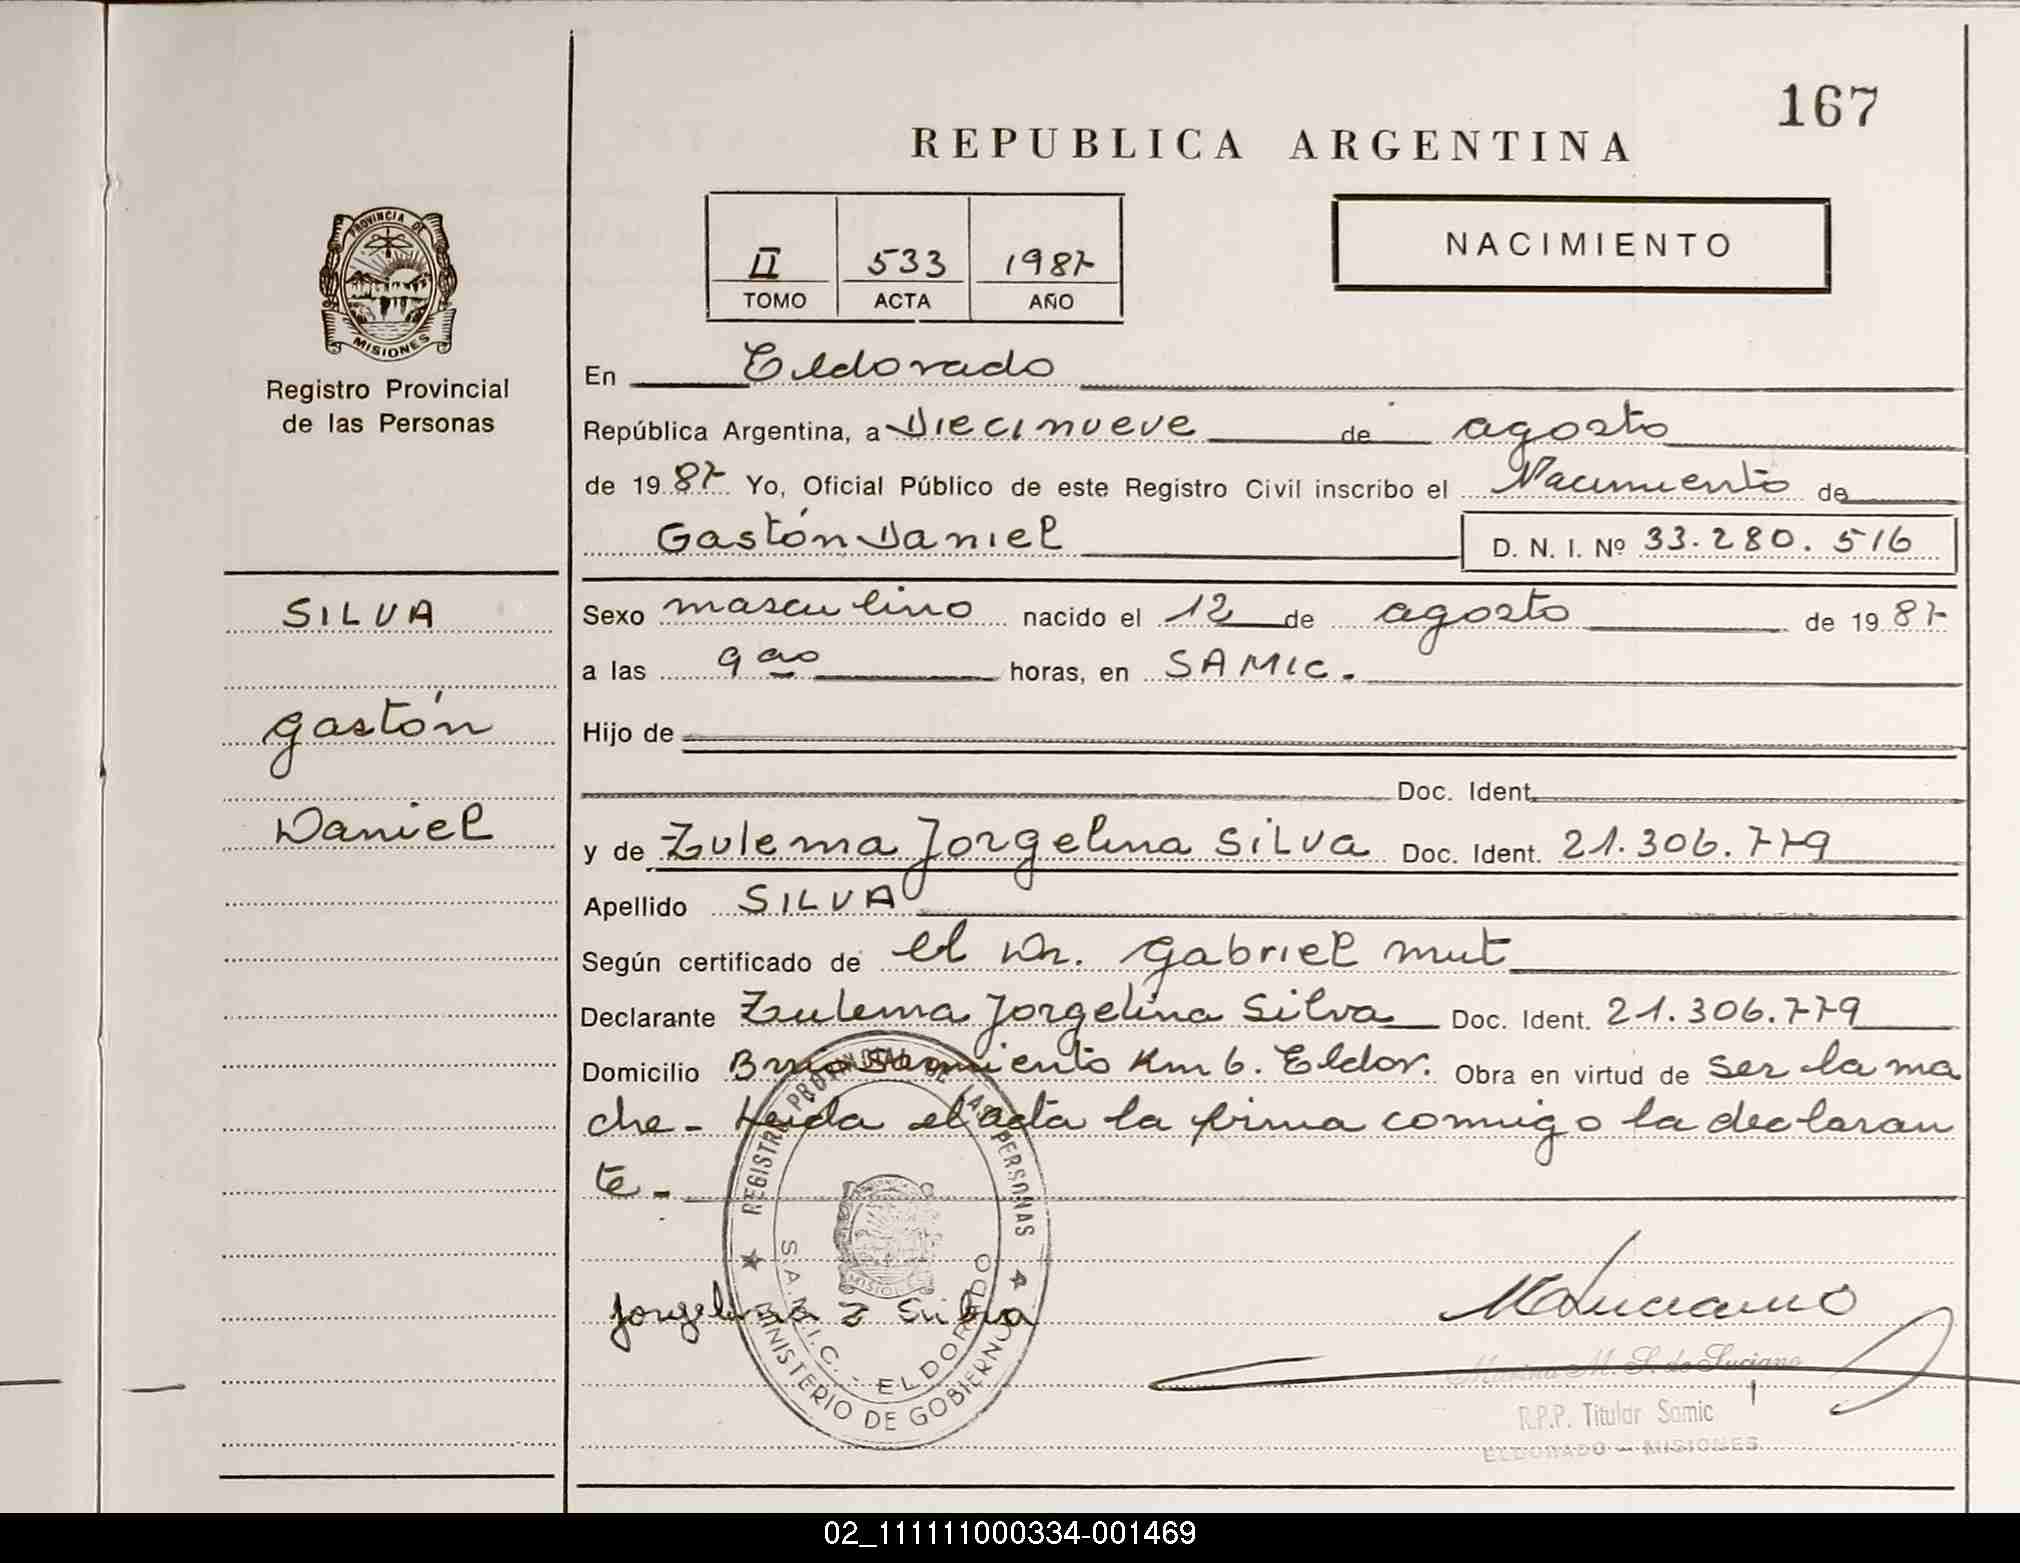 167
REPUBLICA ARGENTINA
II 533 1987
TOMO ACTA AÑO
NACIMIENTO
PROVINCIA DE
MISIONES
Registro Provincial
de las Personas
En Eldorado
República Argentina, a Diecinueve de agosto
de 1987 Yo, Oficial Público de este Registro Civil inscribo el Nacimiento de
Gastón Daniel D. N. I. Nº 33.280.516
SILVA
Gastón
Daniel
Sexo masculino nacido el 12 de agosto de 1987
a las 9 horas, en SAMIC.
Hijo de
Doc. Ident.
y de Zulema Jorgelina Silva Doc. Ident. 21.306.779
Apellido SILVA
Según certificado de el Dr. Gabriel Mut
Declarante Zulema Jorgelina Silva Doc. Ident. 21.306.779
Domicilio Brio Sarmiento Km 6. Eldor. Obra en virtud de ser la ma
dre - Leida el acta la firma conmigo la declaran
te -
REGISTRO PROVINCIAL DE LAS PERSONAS
S.A.M.I.C. - ELDORADO
MINISTERIO DE GOBIERNO
MISIONES
Jorgelina Z Silva
M. S. de Luciano
R.P.P. Titular Samic
ELDORADO - MISIONES
02_111111000334-001469